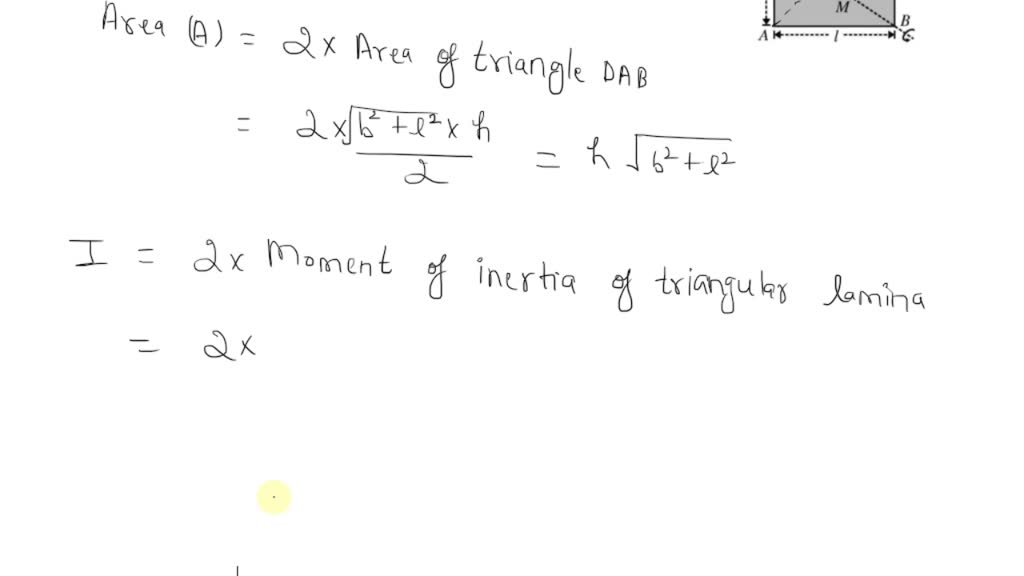 M
B
A l C
Area (A) = 2 x Area of triangle DAB
= 2 x √(b² + l²) x h / 2 = h √(b² + l²)
I = 2 x Moment of inertia of triangular lamina
= 2 x